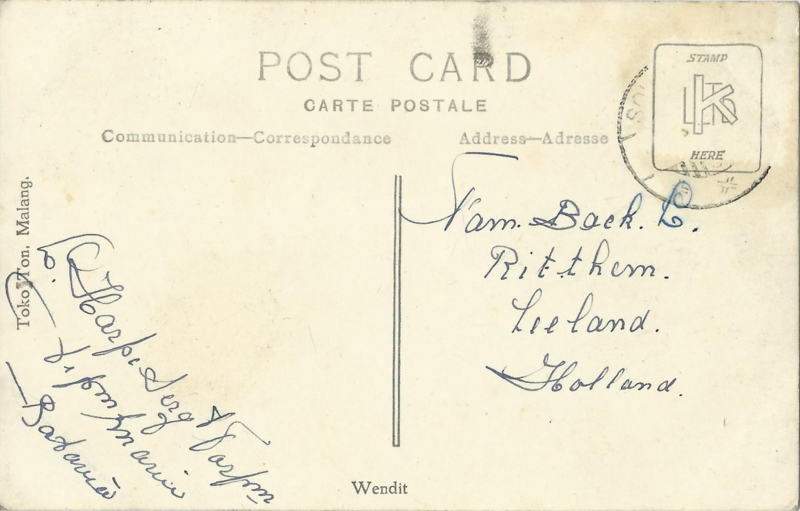 POST CARD
CARTE POSTALE
Communication—Correspondance
Address—Adresse
STAMP
HERE
Fam. Back. L.
Ritthem.
Zeeland.
Holland.
Toko Ton, Malang.
Harpe Serg
Batavia
Wendit